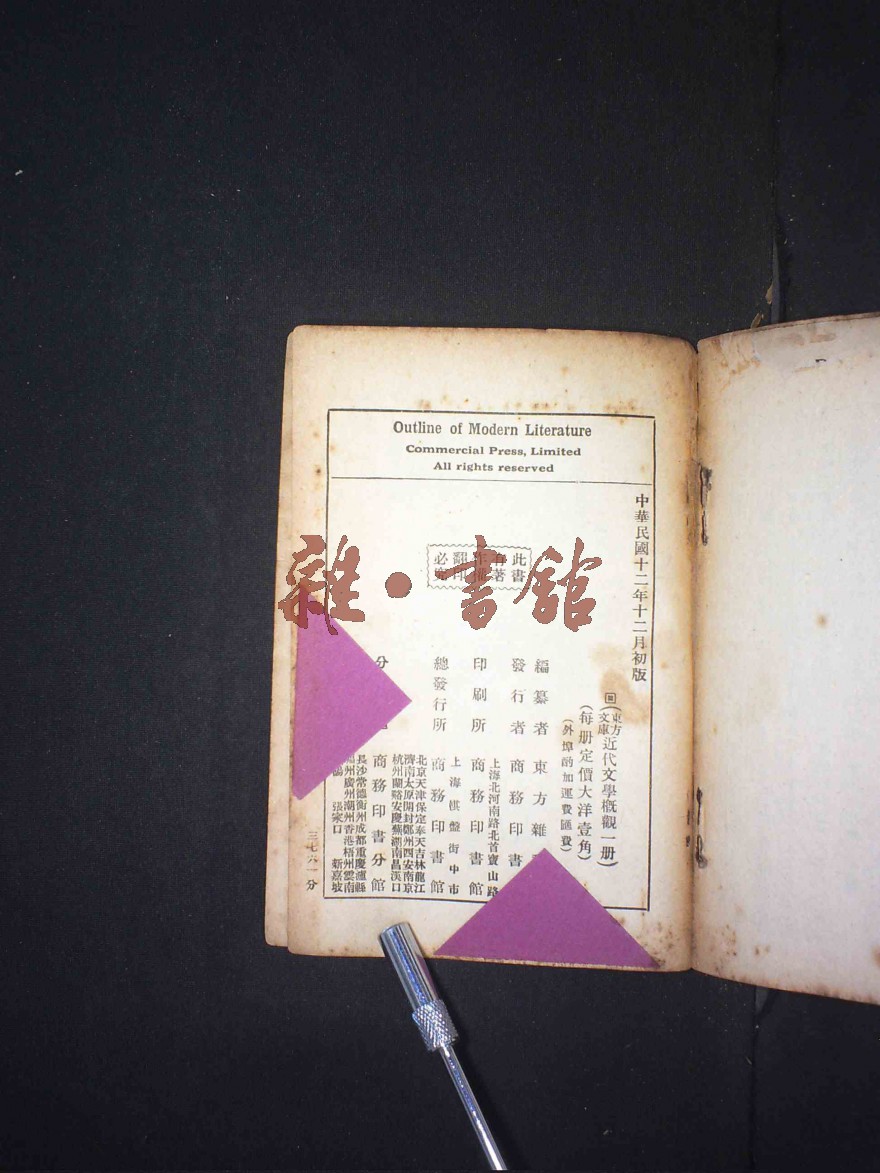 Outline of Modern Literature
Commercial Press, Limited
All rights reserved
中華民國十二年十二月初版
東方文庫
近代文學概觀一册
(每册定價大洋壹角)
(外埠酌加運費匯費)
此書
有著
作權
翻印
必究
編纂者 東方雜
發行者 商務印書
上海北河南路北首寶山路
印刷所 商務印書館
上海棋盤街中市
總發行所 商務印書館
北京天津保定奉天吉林龍江
濟南太原開封鄭州西安南京
杭州蘭谿安慶蕪湖南昌漢口
分 商務印書分館
長沙常德衡州成都重慶瀘縣
州廣州潮州香港梧州雲南
張家口 新嘉坡
三七六一分
雜·書館